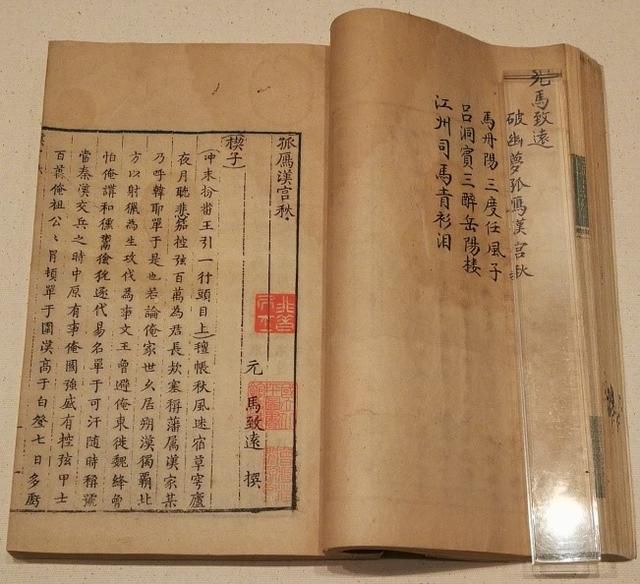 元馬致遠
破幽夢孤鴈漢宮秋
馬丹陽三度任風子
呂洞賓三醉岳陽樓
江州司馬青衫淚
孤鴈漢宮秋
元 馬致遠 撰
(楔子)
(冲末扮畨王引一行頭目上)氊帳秋風迷宿草穹廬
夜月聽悲笳控弦百萬為君長欵塞稱藩屬漢家某
乃呼韓耶單于是也若論俺家世乆居朔漠獨覇北
方以射獵為生攻伐為事文王曾避俺東徙魏絳曾
怕俺講和獯鬻猃狁逐代易名單于可汗随時稱號
當秦漢交兵之時中原有事俺國強盛有控弦甲士
百萬俺祖公公冐頓單于圍漢高于白登七日多虧